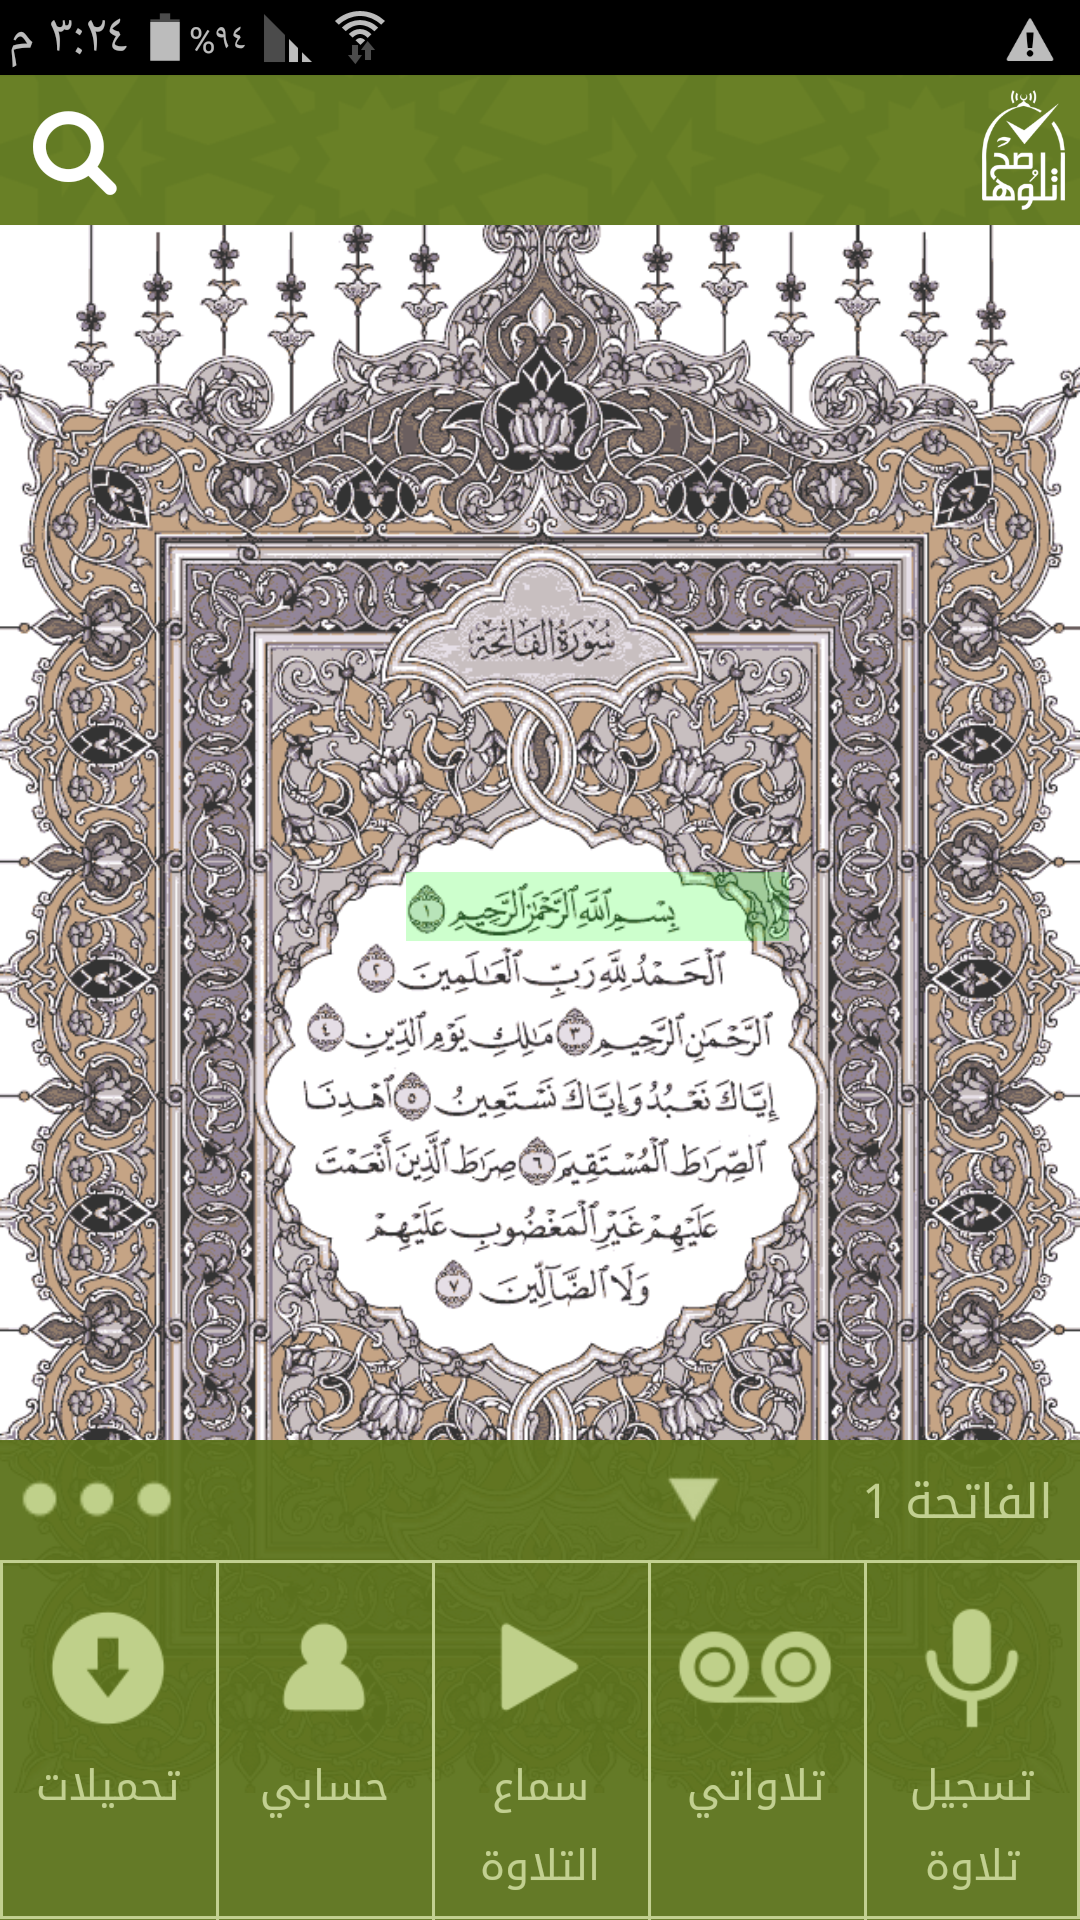 ٣:٢٤ م
%٩٤
صح
اتلوها
سُورَةُ الفَاتِحَة
بِسْمِ ٱللَّهِ ٱلرَّحْمَٰنِ ٱلرَّحِيمِ ١
ٱلْحَمْدُ لِلَّهِ رَبِّ ٱلْعَٰلَمِينَ ٢
ٱلرَّحْمَٰنِ ٱلرَّحِيمِ ٣ مَٰلِكِ يَوْمِ ٱلدِّينِ ٤
إِيَّاكَ نَعْبُدُ وَإِيَّاكَ نَسْتَعِينُ ٥ ٱهْدِنَا
ٱلصِّرَٰطَ ٱلْمُسْتَقِيمَ ٦ صِرَٰطَ ٱلَّذِينَ أَنْعَمْتَ
عَلَيْهِمْ غَيْرِ ٱلْمَغْضُوبِ عَلَيْهِمْ
وَلَا ٱلضَّآلِّينَ ٧
الفاتحة 1
تسجيل تلاوة
تلاواتي
سماع التلاوة
حسابي
تحميلات